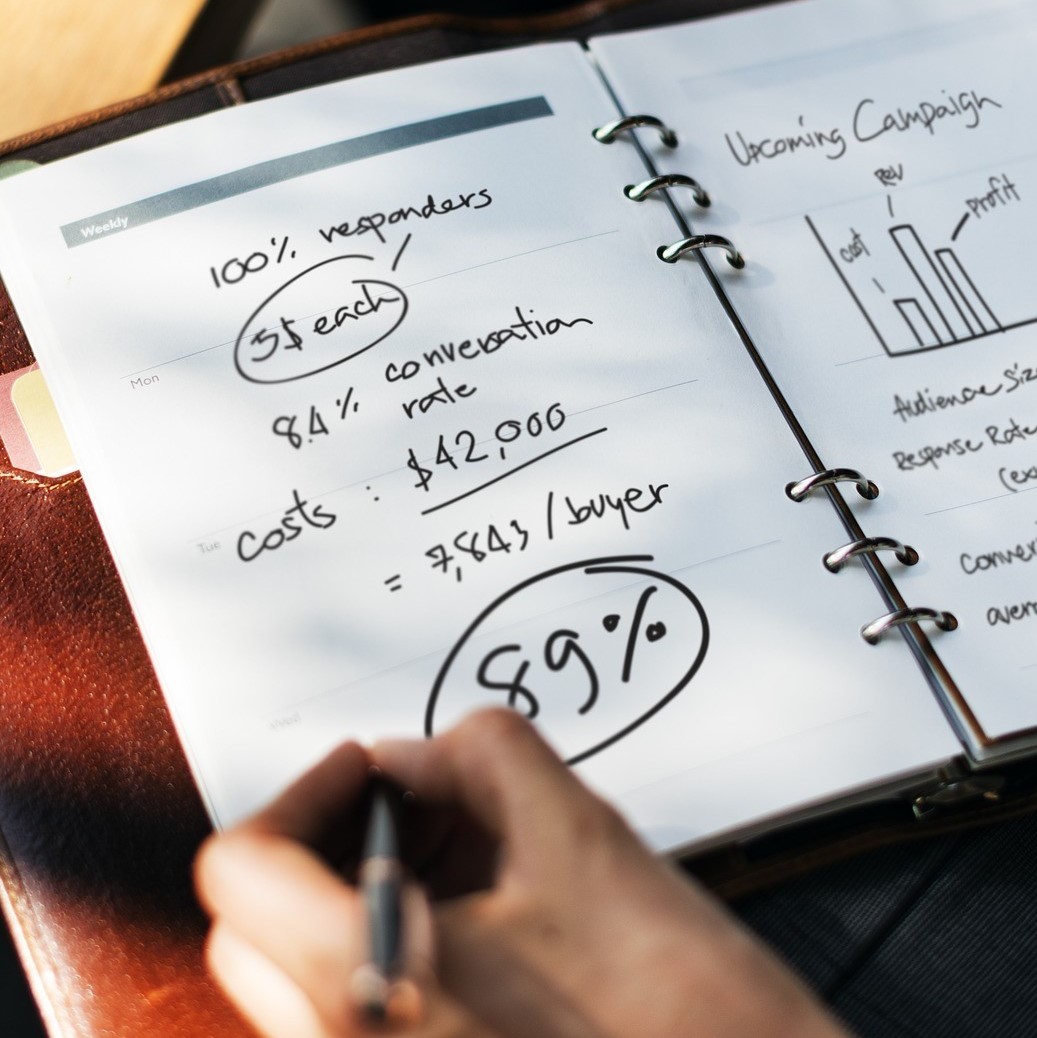 Weekly
100% responders
5$ each
Mon
8.4% conversation
rate
Tue
costs : $42,000
= 7,843 /buyer
89%
Upcoming Campaign
Rev
Profit
cost
Audience Siz
Response Rate
(ex
Conver
aver